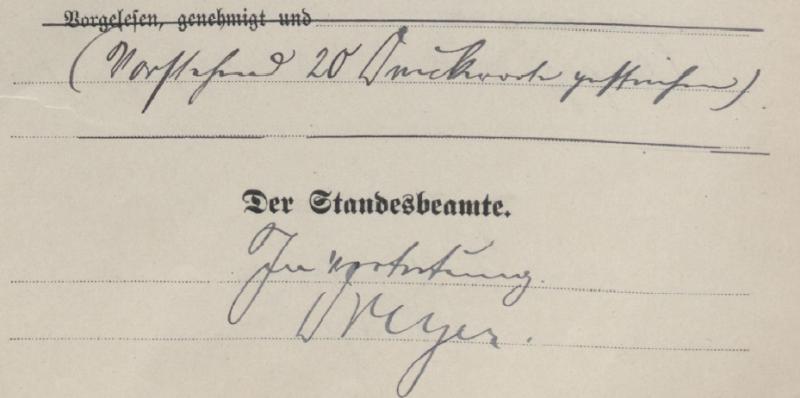 Vorgelesen, genehmigt und
(Vorstehend 20 Druckworte gestrichen)
Der Standesbeamte.
In Vertretung.
Dreyer.